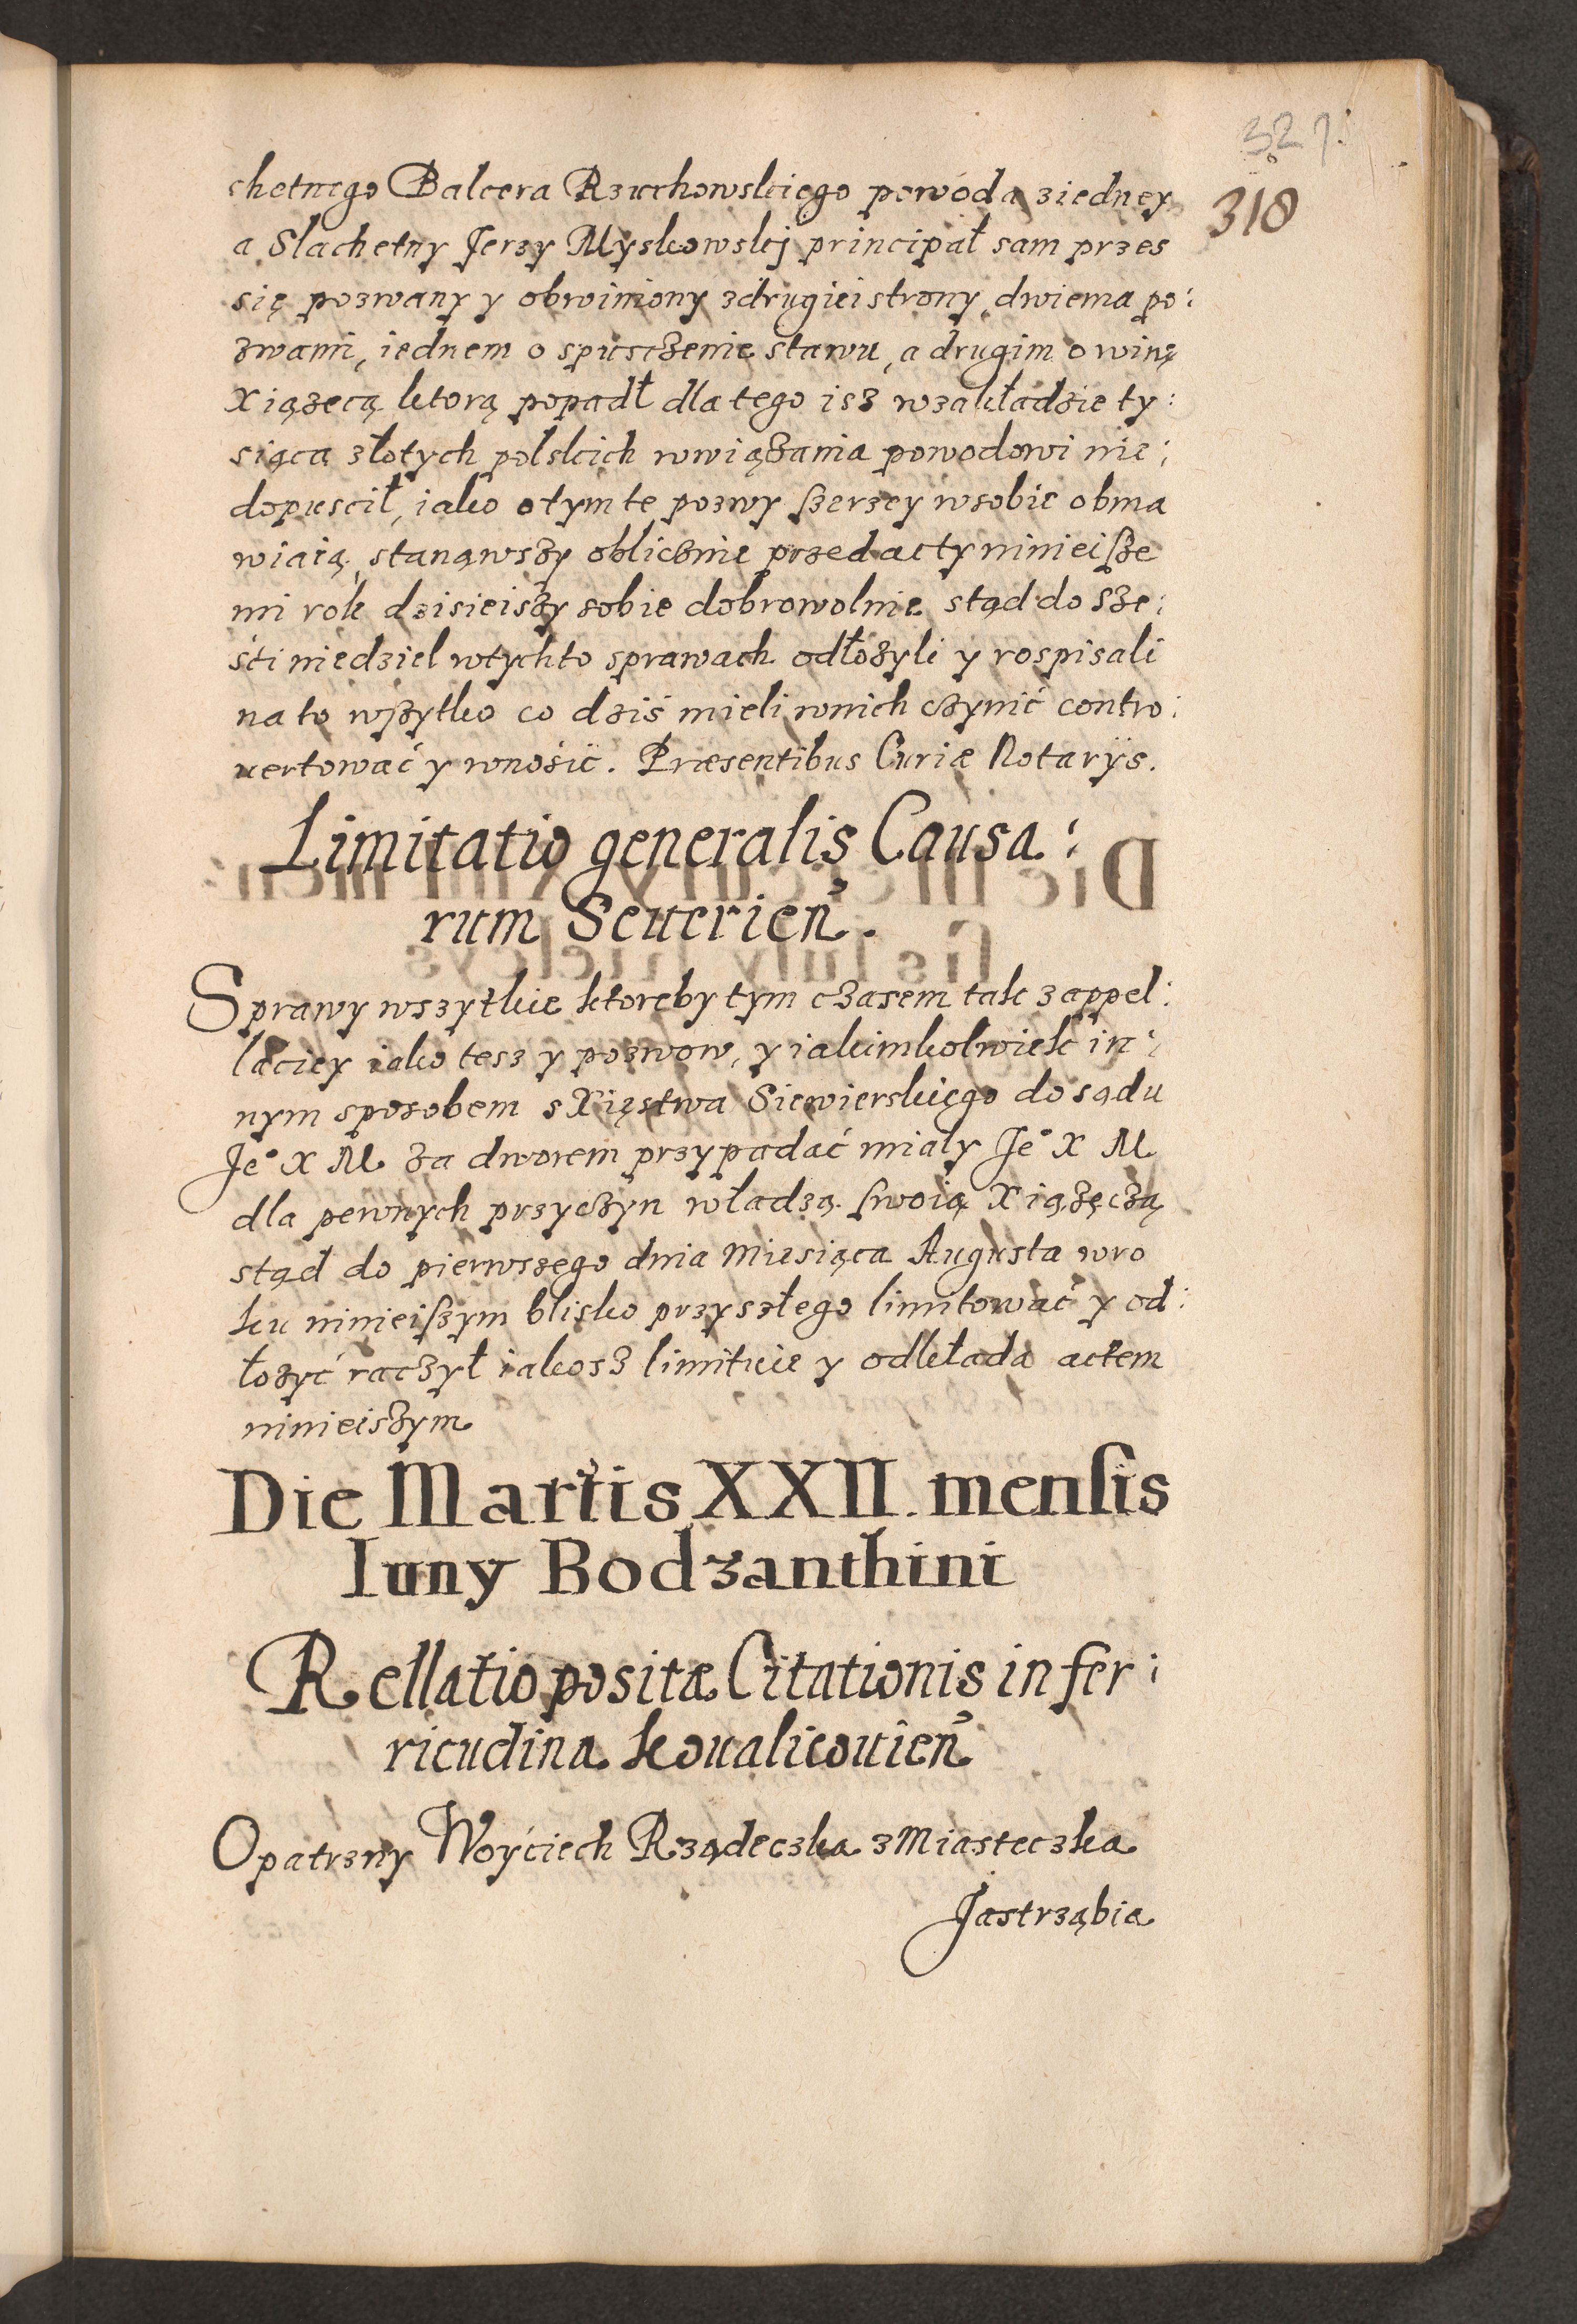 327.
318
chetnego Balcera Rzuchowskiego powoda z iedney
a Slachetny Jerzy Myskowskj principał sam przes
się pozwany y obwiniony z drugiei strony, dwiema po:
zwami, iednem o spusczenie stawu, a drugim o winę
Xiązecą ktorą popadł dla tego isz w zakładzie ty:
siąca złotych polskich wwiązania powodowi nie:
dopuscił, iako o tym te pozwy szerzey w sobie obma
wiaią, stanąwszy oblicznie przed acty ninieisze
mi rok dzisieiszy sobie dobrowolnie stąd do sze:
ści niedziel w tych to sprawach odłożyli y rospisali
na to wszytko co dziś mieli w nich czynić contro:
uertować y wnosić. Præsentibus Curiæ Notarÿs.
Limitatio generalis Causa:
rum Seuerien̄.
Sprawy wszytkie ktoreby tym czasem tak z appel:
laciey iako tesz y pozwow, y iakimkolwiek in:
nym sposobem s Xięstwa Siewierskiego do sądu
Je° X M za dworem przypadać mialy Je° X M
dla pewnych przyczyn władzą swoią Xiązęczą
stąd do pierwszego dnia Miesiąca Augusta w ro
ku ninieiszym blisko przyszłego limitować y od:
łozyć raczył iakosz limituie y odkłada actem
ninieiszym
Die Martis XXII. mensis
Iuny Bodzanthini
Rellatio positæ Citationis in fer:
ricudina koualicouien̄
Opatrzny Woyciech Rządeczka z Miasteczka
Jastrząbia